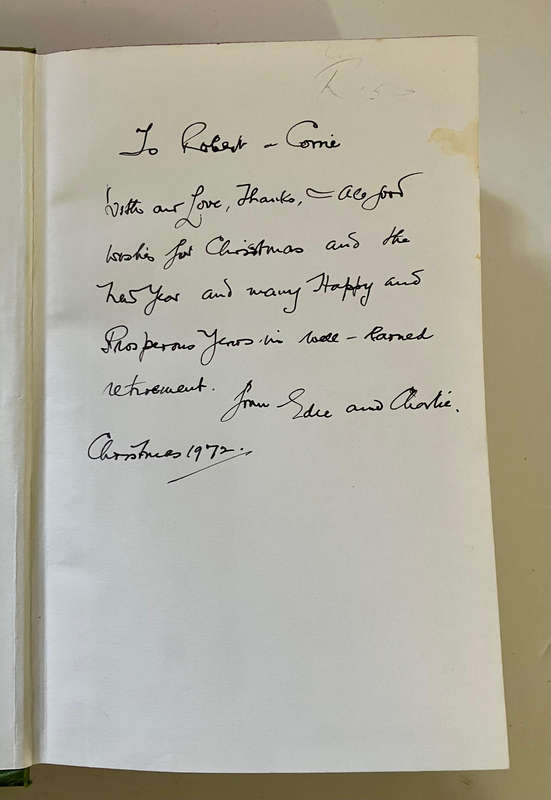 To Robert & Corrie
With our Love, Thanks, & all good
wishes for Christmas and the
New Year and many Happy and
Prosperous Years in well-earned
retirement. from Edie and Charlie.
Christmas 1972.